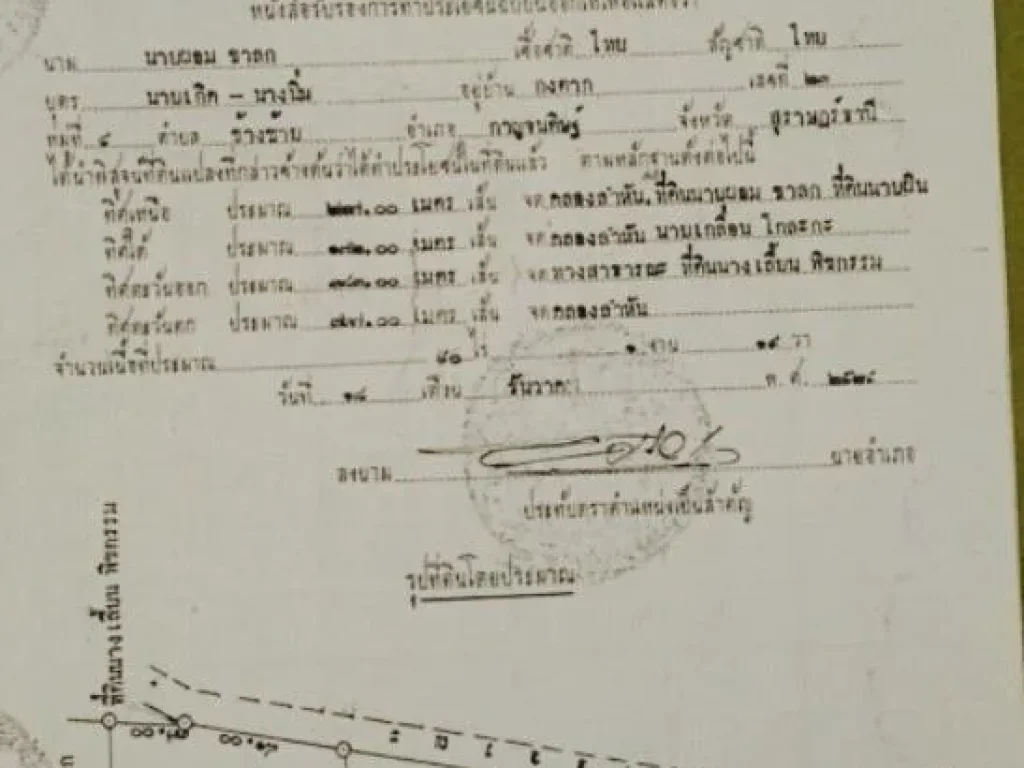 หนังสือรับรองการทำประโยชน์ฉบับนี้ออกให้เพื่อแสดงว่า
นาม นายผอม ชาลก เชื้อชาติ ไทย สัญชาติ ไทย
บุตร นายเกิด - นางนิ่ม อยู่บ้าน กงตาก เลขที่ ๒๓
หมู่ที่ ๔ ตำบล ช้างซ้าย อำเภอ กาญจนดิษฐ์ จังหวัด สุราษฎร์ธานี
ได้นำพิสูจน์ที่ดินแปลงที่กล่าวข้างต้นว่าได้ทำประโยชน์ในที่ดินแล้ว ตามหลักฐานดังต่อไปนี้
ทิศเหนือ ประมาณ เมตร เส้น จดคลองลำหัน ที่ดินนายผอม ชาลก ที่ดินนายผิน
ทิศใต้ ประมาณ ๑๗๒.๐๐ เมตร เส้น จดคลองลำหัน นายเกลื่อน โกละกะ
ทิศตะวันออก ประมาณ เมตร เส้น จดทางสาธารณะ ที่ดินนางเลี้ยน พิชกรรม
ทิศตะวันตก ประมาณ เมตร เส้น จดคลองลำหัน
จำนวนเนื้อที่ประมาณ ๔๐ ไร่ ๑ งาน ๑๙ วา
วันที่ ๑๘ เดือน ธันวาคม พ.ศ. ๒๕๒๘
ลงนาม นายอำเภอ
ประทับตราตำแหน่งเป็นสำคัญ
รูปที่ดินโดยประมาณ
ที่ดินนางเลี้ยน พิชกรรม